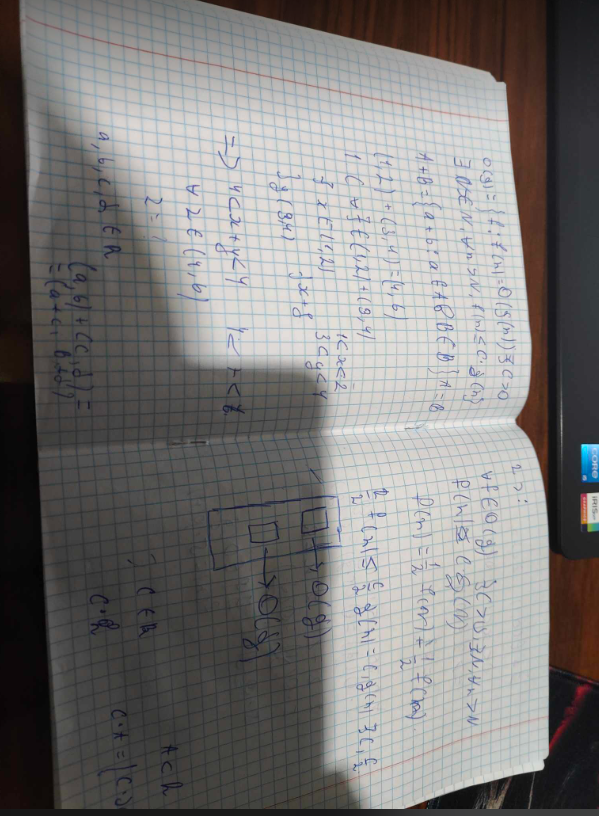 O(g) = { f : f(n) = O(g(n)) ∃c>0
∃N∈N, ∀n>N, f(n) ≤ c·g(n)
A+B = {a+b : a∈A, b∈B} A=B
(1,2) + (3,4) = (4,6)
1. ⊂ ∀z∈(1,2)+(3,4)
∃ x∈(1,2) 1<x<2
∃y(3,4) x+y 3<y<4
=> 4<x+y<
∀z∈(4,6)
z =
a, b, c, d ∈ R (a,b) + (c,d) =
= (a+c, b+d)
2) :
∀f∈O(g) ∃c>0 ∃N, ∀n>N
f(n) ≤ c g(n)
f(n) = 1/2 f(n) + 1/2 f(n)
1/2 f(n) ≤ c/2 g(n) = c₁ g(n)
→ O(g)
→ O(g)
c∈R
c·A
A⊂R
c·A = {c·
CORE